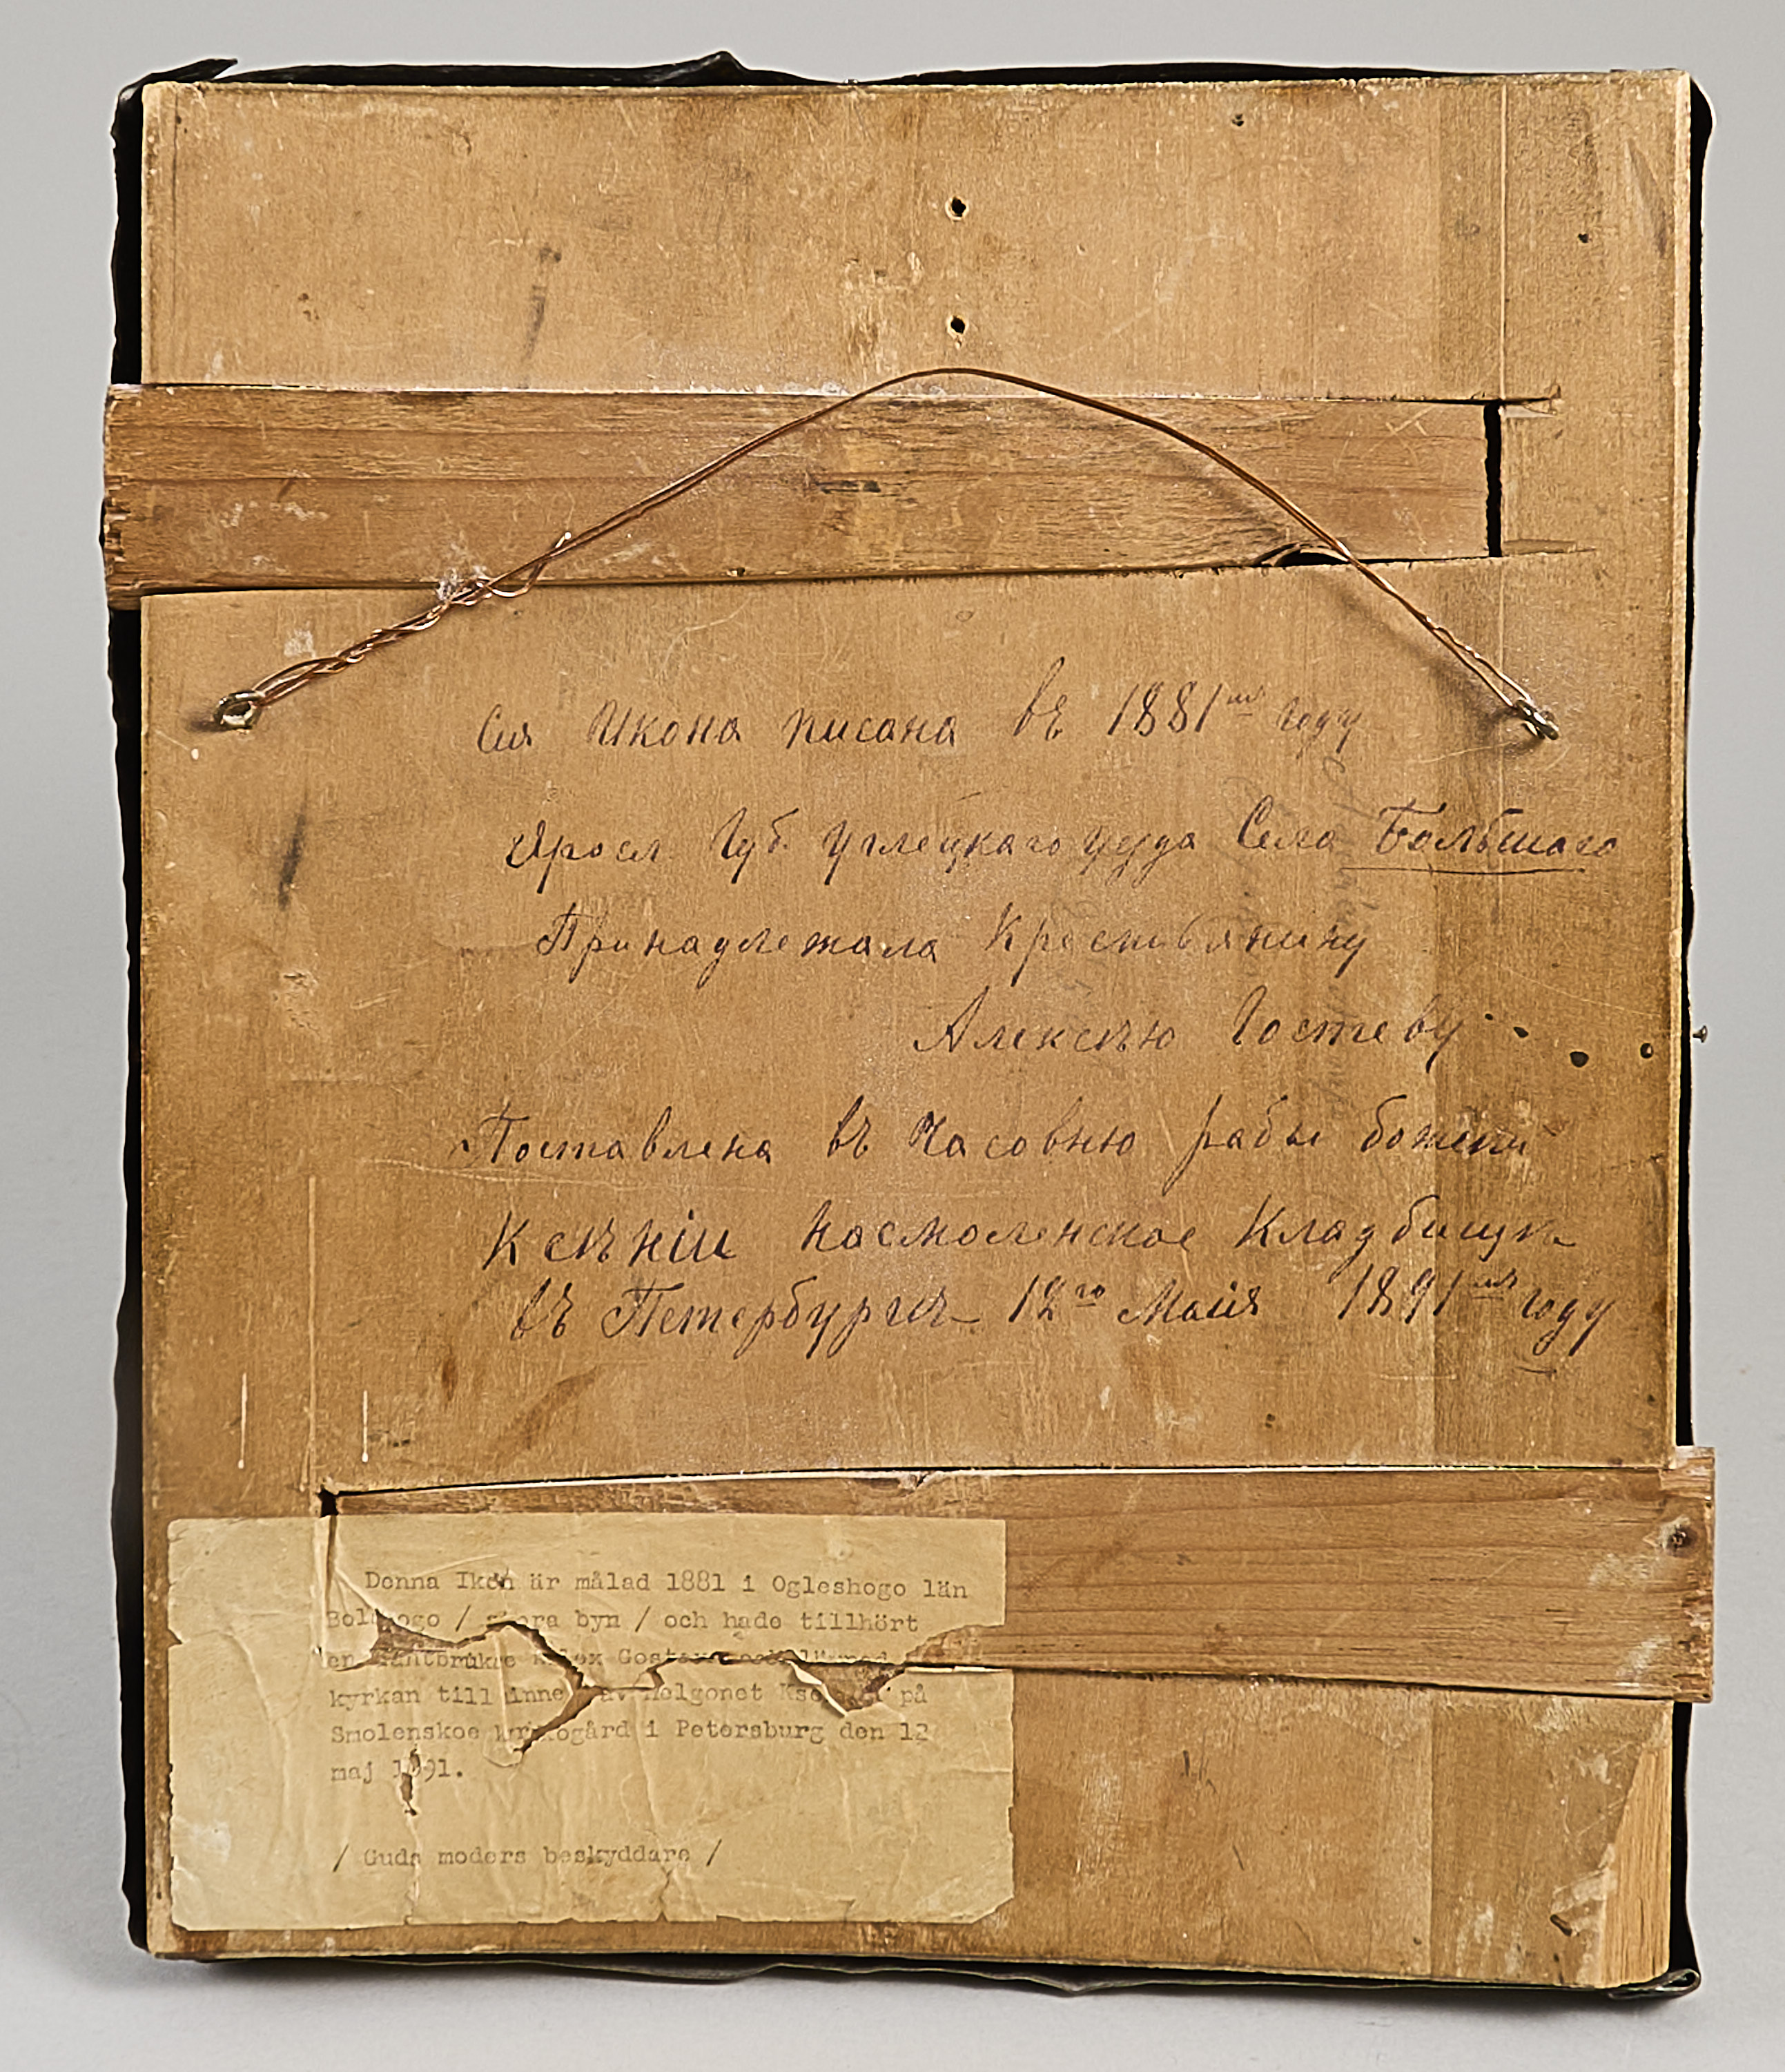 Сия Икона писана въ 1881мъ году
Яросл Губ. Углецкаго уезда Села Большаго
Принадлежала Крестьянину
Алексѣю Гостеву
Поставлена въ Часовню рабы божеи
Ксѣніи насмоленское Кладбищѣ
въ Петербургѣ 12го Маія 1891мъ году
Denna Ikon är målad 1881 i Ogleshogo län
/ stora byn / och hade tillhört
en
kyrkan till av Helgonet på
Smolenskoe kyrkogård i Petersburg den 12
maj 1891.
/ Guds moders beskyddare /